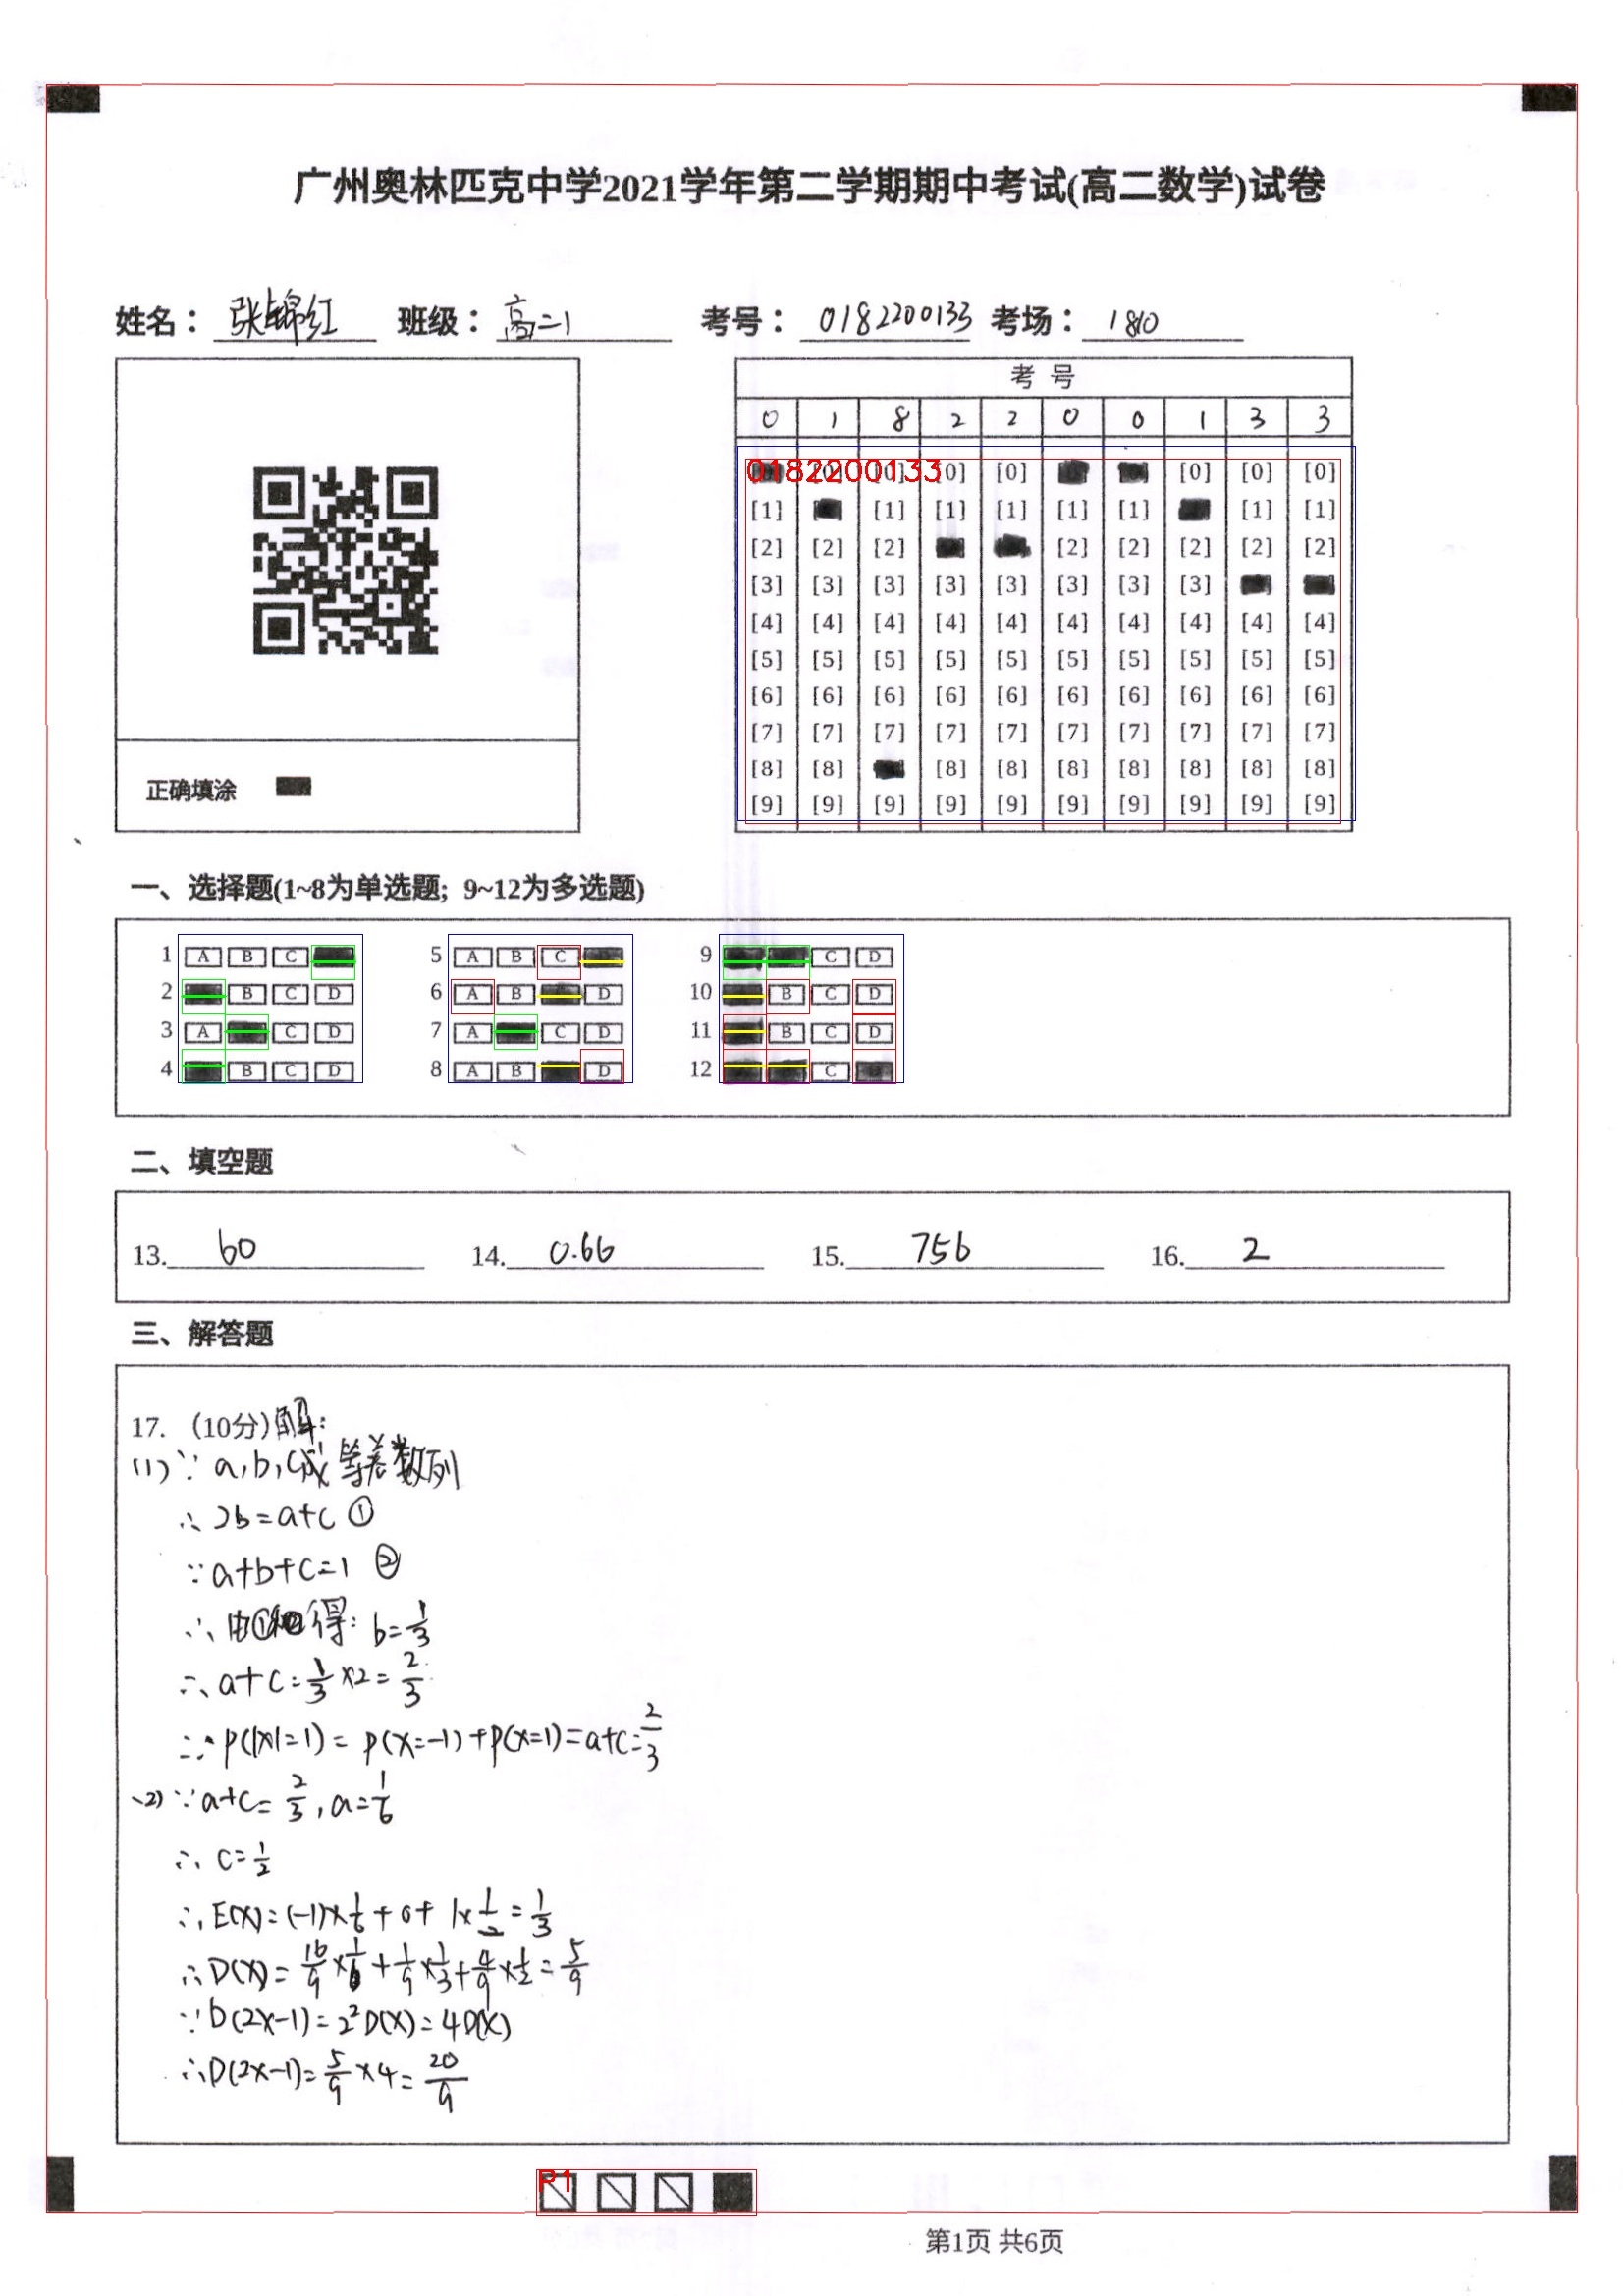 广州奥林匹克中学2021学年第二学期期中考试(高二数学)试卷
姓名： 张锦红 班级： 高二1 考号： 0182200133 考场： 1810
考 号
0 1 8 2 2 0 0 1 3 3
0182200133 [0] [0] [0] [0] [0] [0]
[1] [1] [1] [1] [1] [1] [1] [1]
[2] [2] [2] [2] [2] [2] [2] [2]
[3] [3] [3] [3] [3] [3] [3] [3]
[4] [4] [4] [4] [4] [4] [4] [4] [4] [4]
[5] [5] [5] [5] [5] [5] [5] [5] [5] [5]
[6] [6] [6] [6] [6] [6] [6] [6] [6] [6]
[7] [7] [7] [7] [7] [7] [7] [7] [7] [7]
[8] [8] [8] [8] [8] [8] [8] [8] [8]
[9] [9] [9] [9] [9] [9] [9] [9] [9] [9]
正确填涂
一、选择题(1~8为单选题; 9~12为多选题)
1 A B C 5 A B C 9 C D
2 B C D 6 A B D 10 B C D
3 A C D 7 A C D 11 B C D
4 B C D 8 A B D 12 C
二、填空题
13. 60 14. 0.66 15. 756 16. 2
三、解答题
17. (10分) 解:
(1) ∵ a,b,c成等差数列
∴ 2b=a+c ①
∵ a+b+c=1 ②
∴ 由①和②得: b=1/3
∴ a+c=1/3×2=2/3
∴ P(|X|=1)= P(X=-1)+P(X=1)=a+c=2/3
(2) ∵ a+c=2/3, a=1/6
∴ c=1/2
∴ E(X)=(-1)×1/6+0+1×1/2=1/3
∴ D(X)=16/9×1/6+1/9×1/3+4/9×1/2=5/9
∵ D(2X-1)=2²D(X)=4D(X)
∴ D(2X-1)=5/9×4=20/9
P1
第1页 共6页